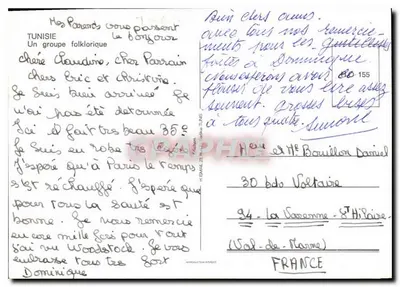 Mes Parents vous passent
le bonjour
TUNISIE
Un groupe folklorique
Chère Claudine, cher Parrain
Chers Eric et Christine.
Je suis bien arrivée Je
n'ai pas été detournée
Ici il fait très beau 35°
Je suis en robe
J'espère qu'à Paris le temps
s'est réchauffé. J'espère que
pour tous la santé est
bonne. Je vous remercie
encore mille fois pour tout
j'ai vu Woodstock. Je vous
embrasse tous très fort
Dominique
Bien chers amis.
avec tous nos remercie-
ments pour les gentillesses
faites à Dominique
avoir
plaisir de vous lire assez
souvent. Grosses bises
à tous quatre. Simone
155
Melle et Mr Bouillon Daniel
30 bdo Voltaire
94 - La Varenne - St Hilaire
(Val-de-Marne)
FRANCE